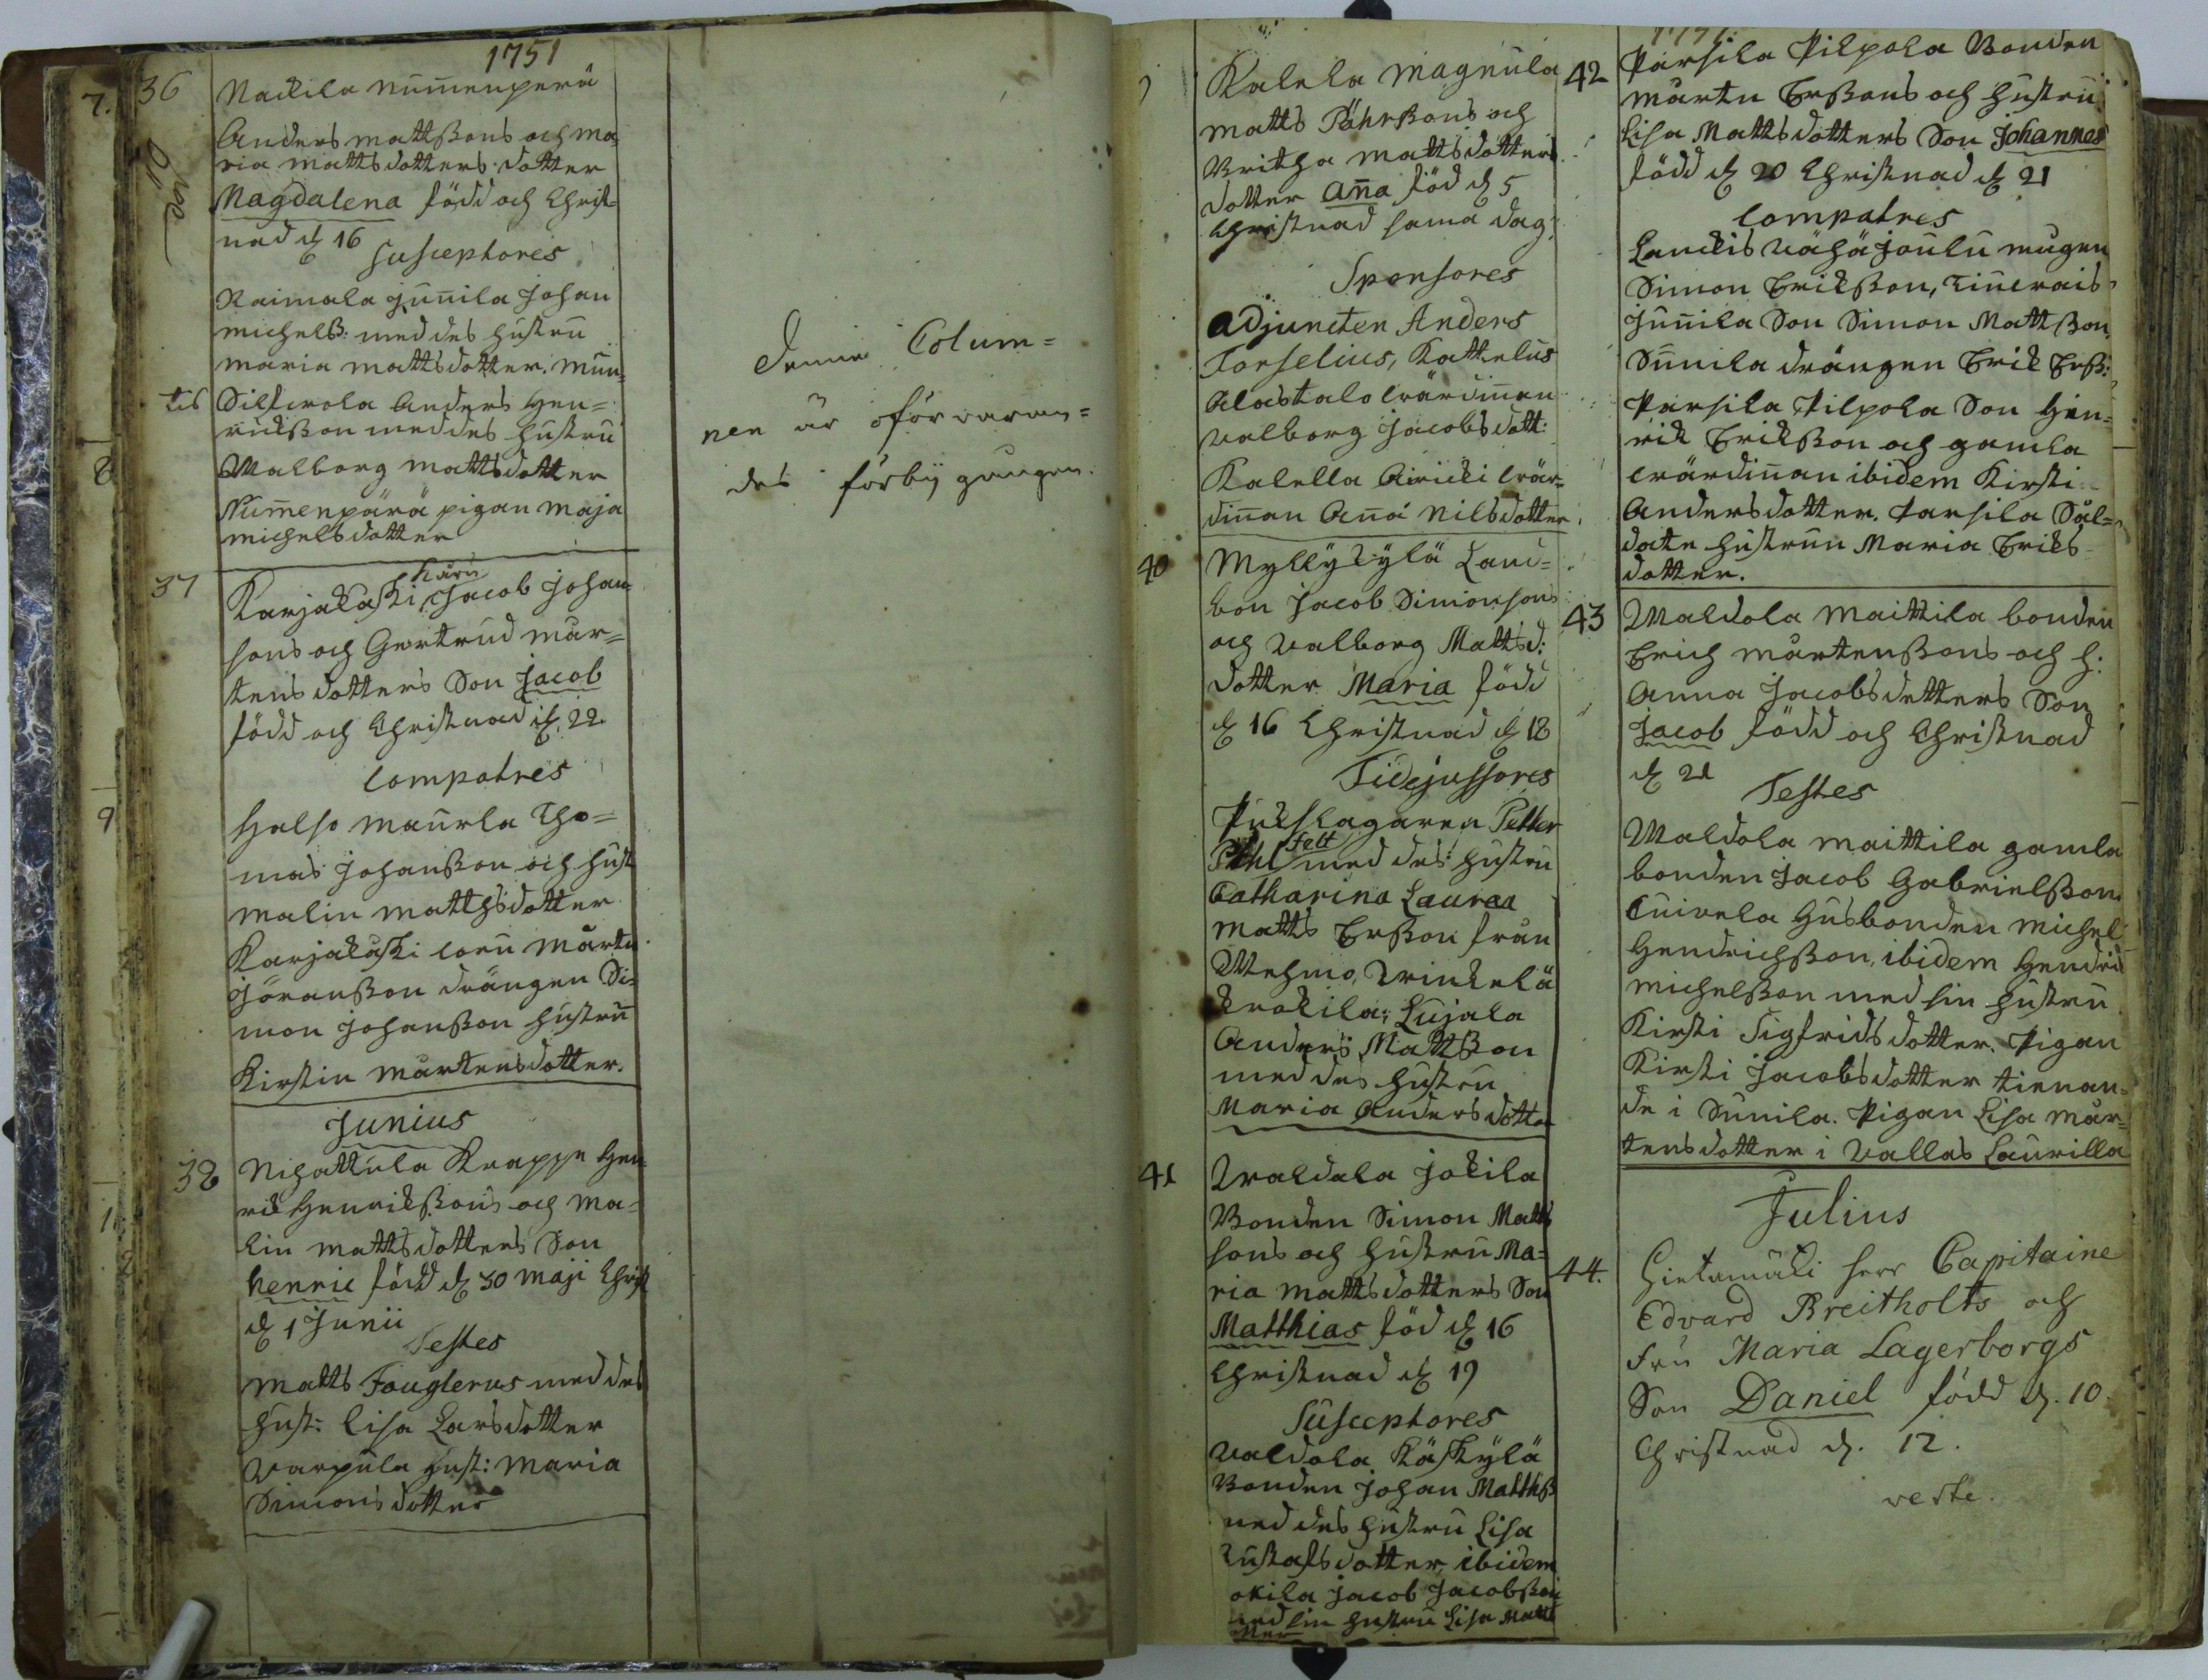 1751
36
Nackila Nummenperä
Anders Mattssons och Ma
ria Mattsdotters dotter
Magdalena född och Christ=
nad d 16
Susceptores
Raimala Junnila Johan
Michelss: med des hustru
Maria Mattsdotter. Mun=
tis
Silferola Anders Hen=
ricksson med des hustru
Walborg Mattsdotter
Nummenpärä pigan Maja
Michelsdotter
37
Karjakoski Jacob Johan
sons och Gertrud Mår=
tensdotters Son Jacob
född och Christnad d 22.
Compatres
Halso Maunla Tho=
mas Johansson och hust
Malin Matthsdotter
Karjakoski Mårten
Jöransson drängen Si=
mon Johansson hustru
Kirstin Mårtensdotter.
Junius
38
Nihattula Knappe Hen
rik Henrikssons och Ma=
lin Mattsdotters Son
Henric född d 30 Maji Christ
d 1 Junii
Testes
Matts Fouglerus med des
Hust: Lisa Larsdotter
Warpula Hust: Maria
Simonsdotter
Denne Colum=
nen är oförvaran=
des förbij gången.
Kalela Magnula
Matts Påhrssons och
Britha Mattsdotters
dotter Anna föd d 5
Christnad sama dag.
Sponsores
Adjuncten Anders
Forselius, Kattelus
Alastalo wärdinnan
Valborg Jacobsdott:
Kalella Äricki wär=
dinnan Anna Nilsdotter.
40
Myllykylä Land=
bon Jacob Simonsons
och Valborg Mattsd:
dotter Maria född
d 16 Christnad d 18
Fidejussores
Pukslagaren Petter
Felt
med des hustru
Catharina Lauraa
Matts Ersson från
Wehmo, Winkelä
Krokila; Lujala
Anders Mattsson
med des hustru
Maria Andersdotter
41
Waldola Jokila
Bonden Simon Matts
sons och hustru Ma=
ria Mattsdotters Son
Matthias föd d 16
Christnad d 19
Susceptores
Valdola Käskylä
Bonden Johan Matthss
med des hustru Lisa
Gustafsdotter, ibidem
okila Jacob Jacobsson
med sin hustru Lisa Matts
tter
42
Parsila Pilpola Bonden
Mårten Erssons och hustru
Lisa Mattsdotters Son Johannes
född d 20 Christnad d 21
Compatres
Lauckis Vähäjoulu mågen
Simon Eriksson,
Junnila Son Simon Mattsson.
Sunnila drängen Erik Erss:
Parsila Pilpola Son Hen=
rik Eriksson och gamla
wärdinnan ibidem Kirsti
Andersdotter. Parsila Sål=
date hustrun Maria Eriks
dotter.
43
Waldola Maittila bonden
Erich Mårtenssons och h:
Anna Jacobsdotters Son
Jacob född och Christnad
d 21
Testes
Waldola Maittila gamla
bonden Jacob Gabrielsson
Cuivela Husbonden Michel
Hendrichsson, ibidem Hendrich
Michelsson med sin hustru
Kirsti Sigfridsdotter. Pigan
Kirsti Jacobsdotter tienan=
de i Sunila. Pigan Lisa Mår=
tensdotter i Vallas Laurilla
Julius
44.
Hietamäki Herr Capitaine
Edvard Breitholts och
Fru Maria Lagerborgs
Son Daniel född d. 10.
Christnad d. 12.
verte.